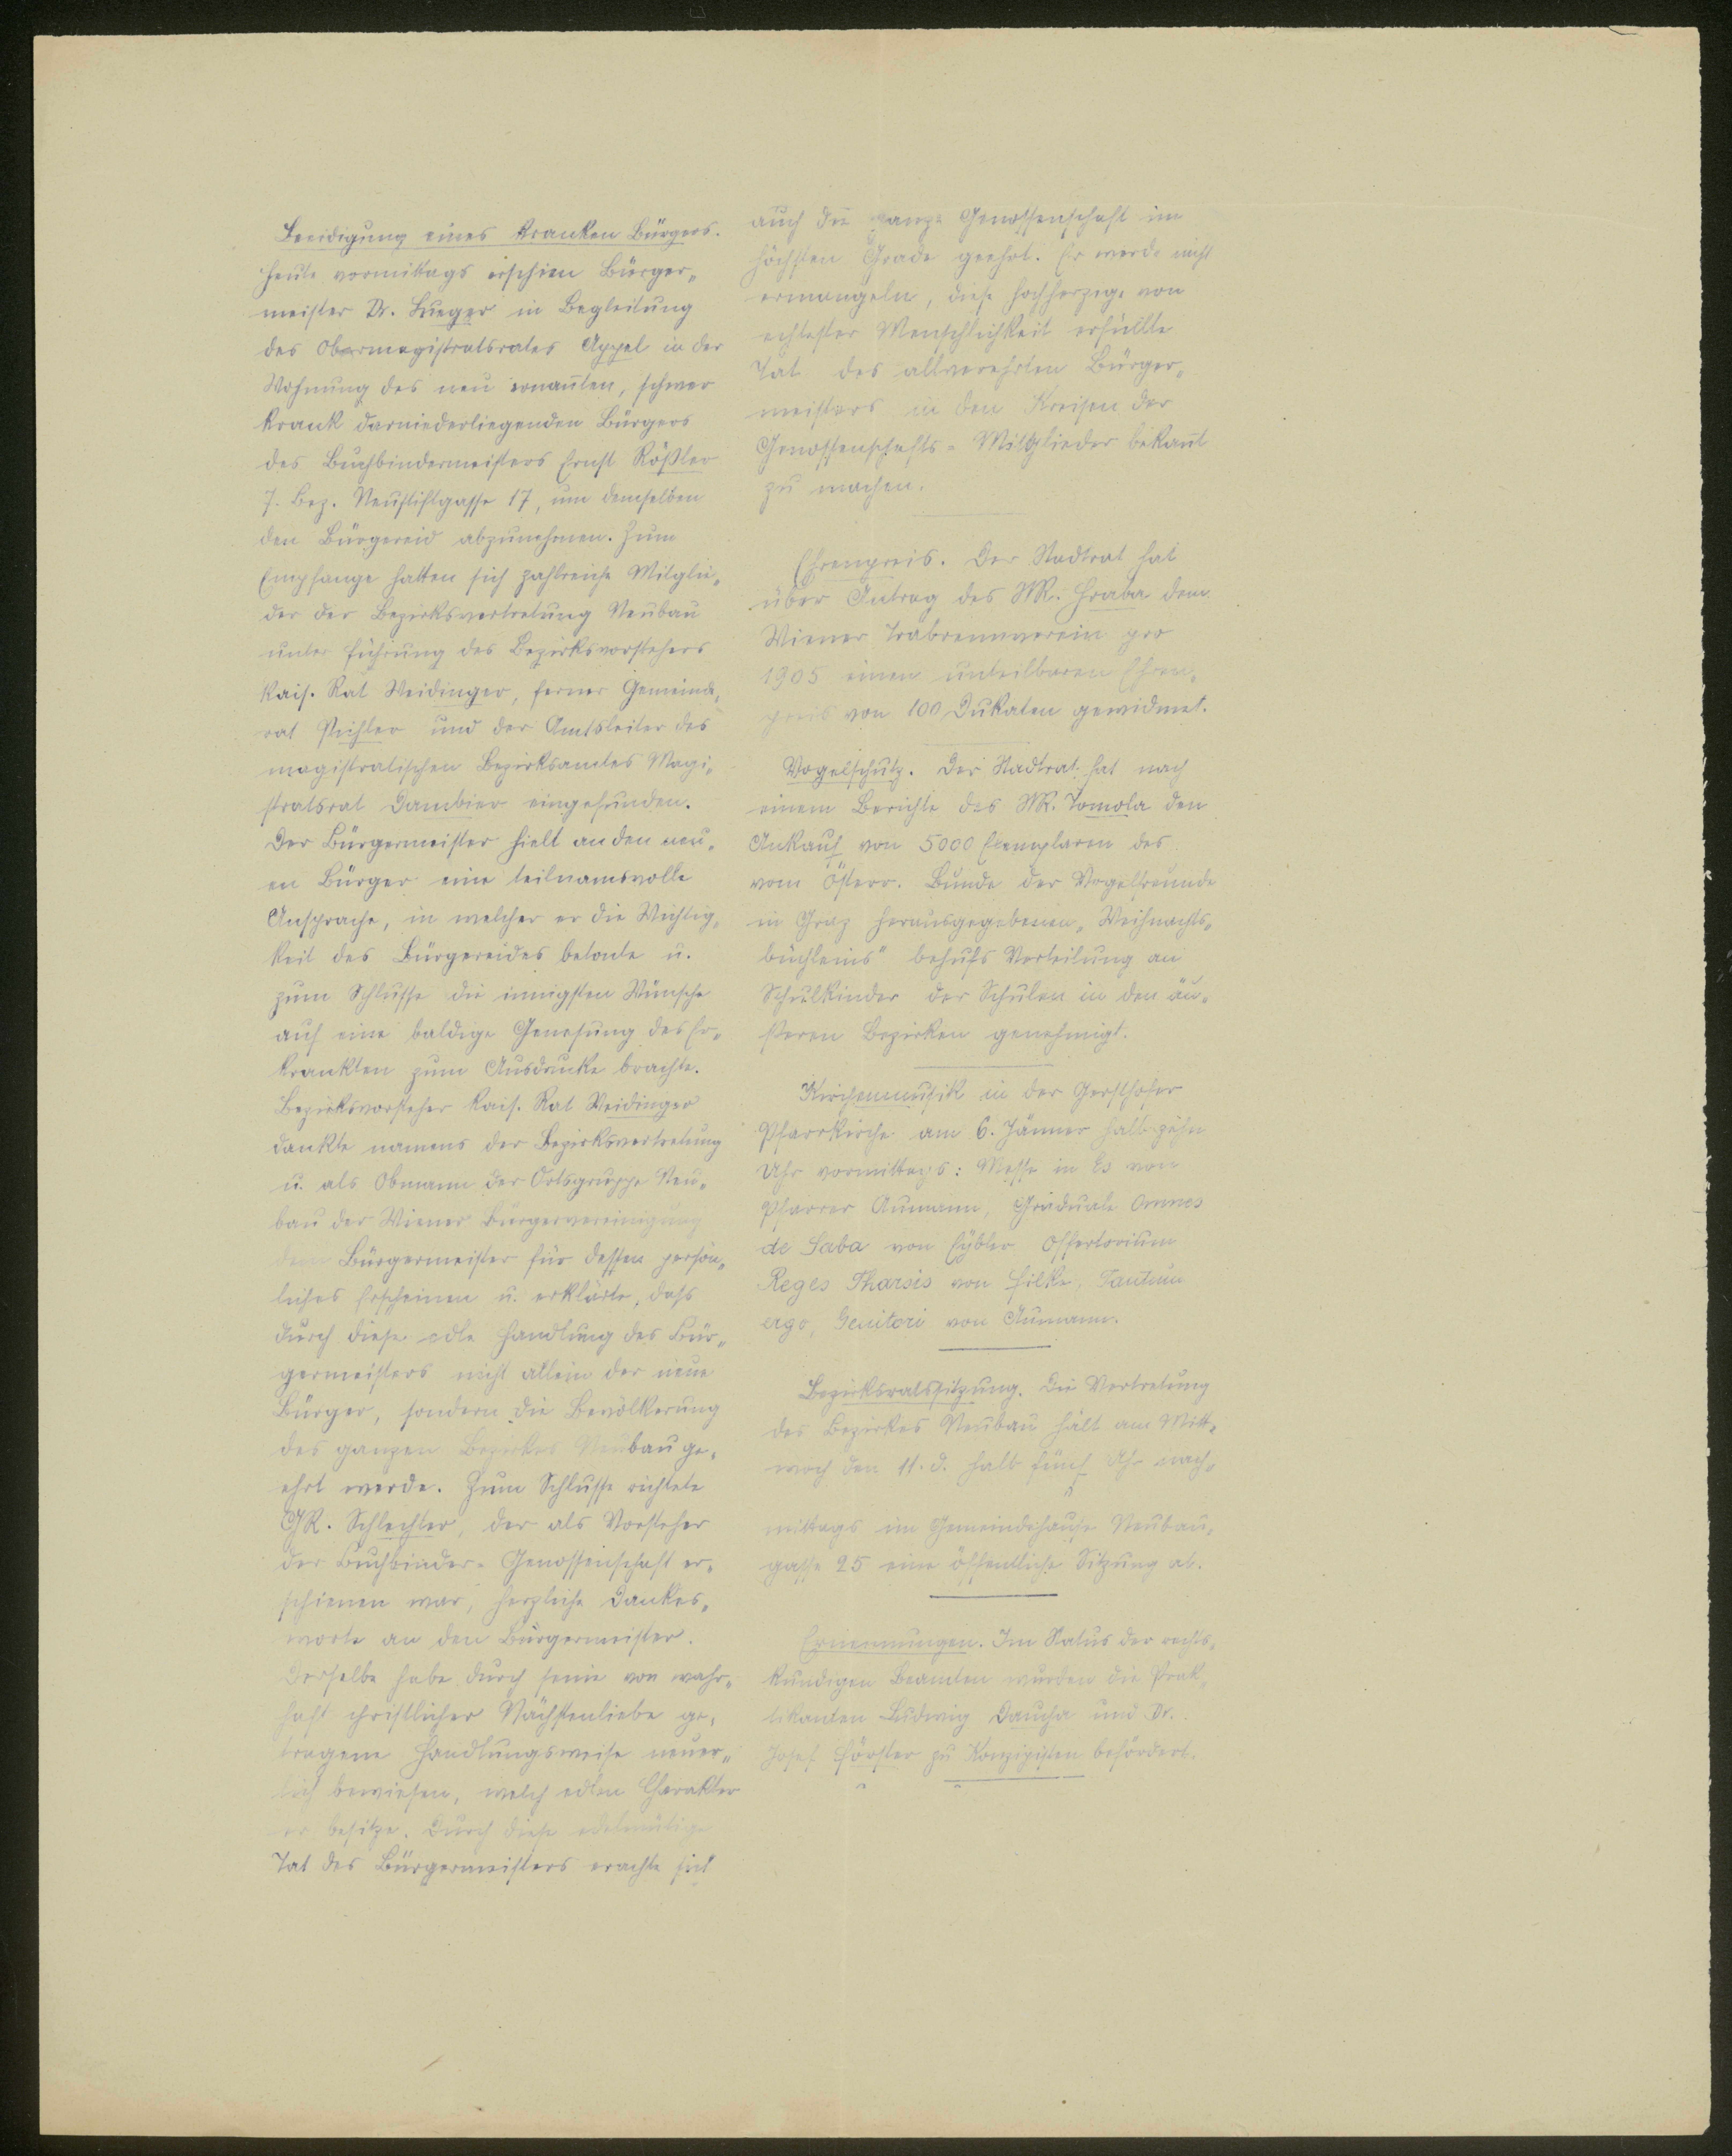 Beeidigung eines kranken Bürgers.
Heute vormittags erschien Bürger„
meister Dr. Lueger in Begleitung
des Obermagistratsrates Appel in der
Wohnung des neu ernannten, schwer
krank darniederliegenden Bürgers
des Buchbindermeisters Ernst Rößler
7. Bez. Neustiftgasse 17, um demselben
den Bürgereid abzunehmen. Zum
Empfange hatten sich zahlreiche Mitglie„
der der Bezirksvertretung Neubau
unter Führung des Bezirksvorstehers
kais. Rat Weidinger, ferner Gemeinde„
rat Pichler und der Amtsleiter des
magistratischen Bezirksamtes Magi„
stratsrat Dambier eingefunden.
Der Bürgermeister hielt an den neu„
en Bürger eine teilnamsvolle
Ansprache, in welcher er die Wichtig„
keit des Bürgereides betonte u.
zum Schlusse die innigsten Wünsche
auf eine baldige Genesung des Er„
krankten zum Ausdrucke brachte.
Bezirksvorsteher kais. Rat Weidinger
dankte namens der Bezirksvertretung
u. als Obmann der Ortsgruppe Neu„
bau der Wiener Bürgervereinigung
dem Bürgermeister für dessen persön„
liches Erscheinen u. erklärte, dass
durch diese edle Handlung des Bür„
germeisters nicht allein der neue
Bürger, sondern die Bevölkerung
des ganzen Bezirkes Neubau ge„
ehrt werde. Zum Schlusse richtete
GR. Schlechter, der als Vorsteher
der Buchbinder-Genossenschaft er„
schienen war, herzliche Dankes„
worte an den Bürgermeister.
Derselbe habe durch seine von wahr„
haft christlicher Nächstenliebe ge„
tragene Handlungsweise neuer„
lich bewiesen, welch edlen Charakter
er besitze. Durch diese edelmütige
Tat des Bürgermeisters erachte sich
auch die ganze Genossenschaft im
höchsten Grade geehrt. Er werde nicht
ermangeln, diese hochherzige von
echtester Menschlichkeit erfüllte
Tat des allverehrten Bürger„
meisters in den Kreisen der
Genossenschafts-Mitglieder bekannt
zu machen.
Ehrenpreis. Der Stadtrat hat
über Antrag des StR. Hraba dem
Wiener Trabrennverein pro
1905 einen unteilbaren Ehren„
preis von 100 Dukaten gewidmet.
Vogelschutz. Der Stadtrat hat nach
einem Berichte des StR. Tomola den
Ankauf von 5000 Exemplaren des
vom österr. Bunde der Vogelfreunde
in Graz herausgegebenen „Weihnachts„
büchleins" behufs Verteilung an
Schulkinder der Schulen in den äu„
ßeren Bezirken genehmigt.
Kirchenmusik in der Gersthofer
Pfarrkirche am 6. Jänner halb zehn
Uhr vormittags: Messe in Es von
Pfarrer Aumann, Graduale Omnes
de Saba von Eybler Offertorium
Reges Tharsis von Filke, Tantum
ergo, Genitori von Aumann.
Bezirksratssitzung. Die Vertretung
des Bezirkes Neubau hält am Mitt„
woch den 11. d. halb fünf Uhr nach„
mittags im Gemeindehause Neubau„
gasse 25 eine öffentliche Sitzung ab.
Ernennungen. Im Status der rechts„
kundigen Beamten wurden die Prak„
tikanten Ludwig Daucha und Dr.
Josef Förster zu Konzipisten befördert.